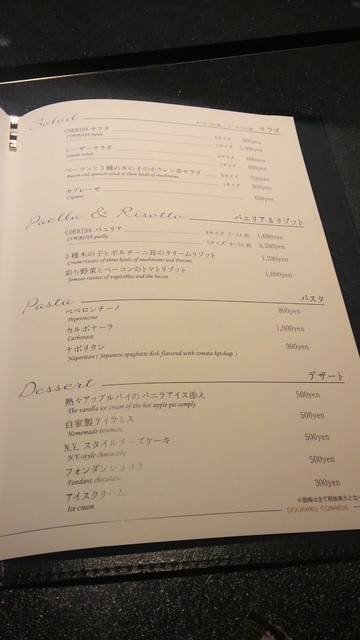 Salad サラダ
CORRIDA サラダ
CORRIDA salad
シーザーサラダ
Caesar salad
ベーコンと3種の木の子のホウレン草サラダ
Bacon and spinach salad of three kinds of mushrooms
カプレーゼ
Caprese
Paella & Risotto パエリア&リゾット
CORRIDA パエリア Sサイズ 2~3人前 1,680yen
CORRIDA paella Lサイズ 4~5人前 3,280yen
3種木の子とポルチーニ茸のクリームリゾット 1,280yen
Cream risotto of three kinds of mushrooms and Porcini.
彩り野菜とベーコンのトマトリゾット 1,000yen
Tomato risotto of vegetables and the bacon
Pasta パスタ
ペペロンチーノ 800yen
Peperoncino
カルボナーラ 1,000yen
Carbonara
ナポリタン 900yen
Naporitan ( Japanese spaghetti dish flavored with tomato ketchup. )
Dessert デザート
熱々アップルパイのバニラアイス添え 500yen
The vanilla ice cream of the hot apple pie comply
自家製ティラミス 500yen
Homemade tiramisu
N.Y. スタイルチーズケーキ 500yen
N.Y.-style cheesecake
フォンダンショコラ 500yen
Fondant chocolate
アイスクリーム 300yen
Ice cream
※価格は全て税抜表示とな
DOURAKU CORRIDA